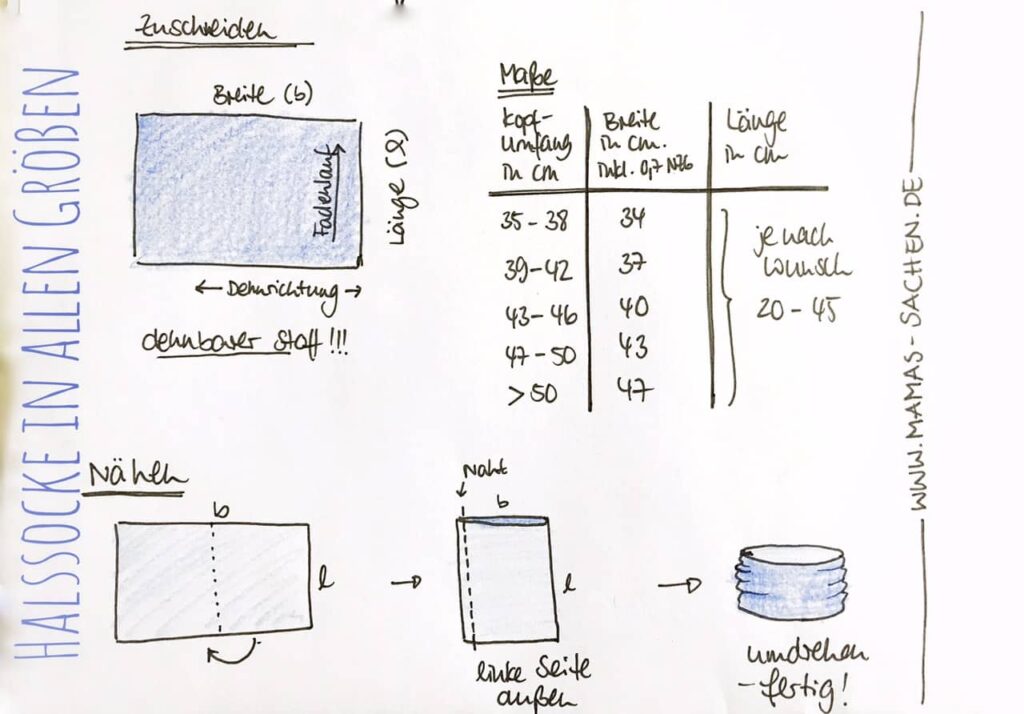 HALSSOCKE IN ALLEN GRÖßEN
Zuschneiden
Breite (b)
Fadenlauf
Länge (l)
← Dehnrichtung →
dehnbarer Stoff!!!
Maße
Kopf-
umfang
in cm
Breite
in cm.
inkl. 0,7 NZG
Länge
in cm
35 - 38
34
39 - 42
37
43 - 46
40
47 - 50
43
> 50
47
je nach
Wunsch
20 - 45
Nähen
b
l
Naht
b
l
linke Seite
außen
umdrehen
- fertig!
WWW.MAMAS-SACHEN.DE